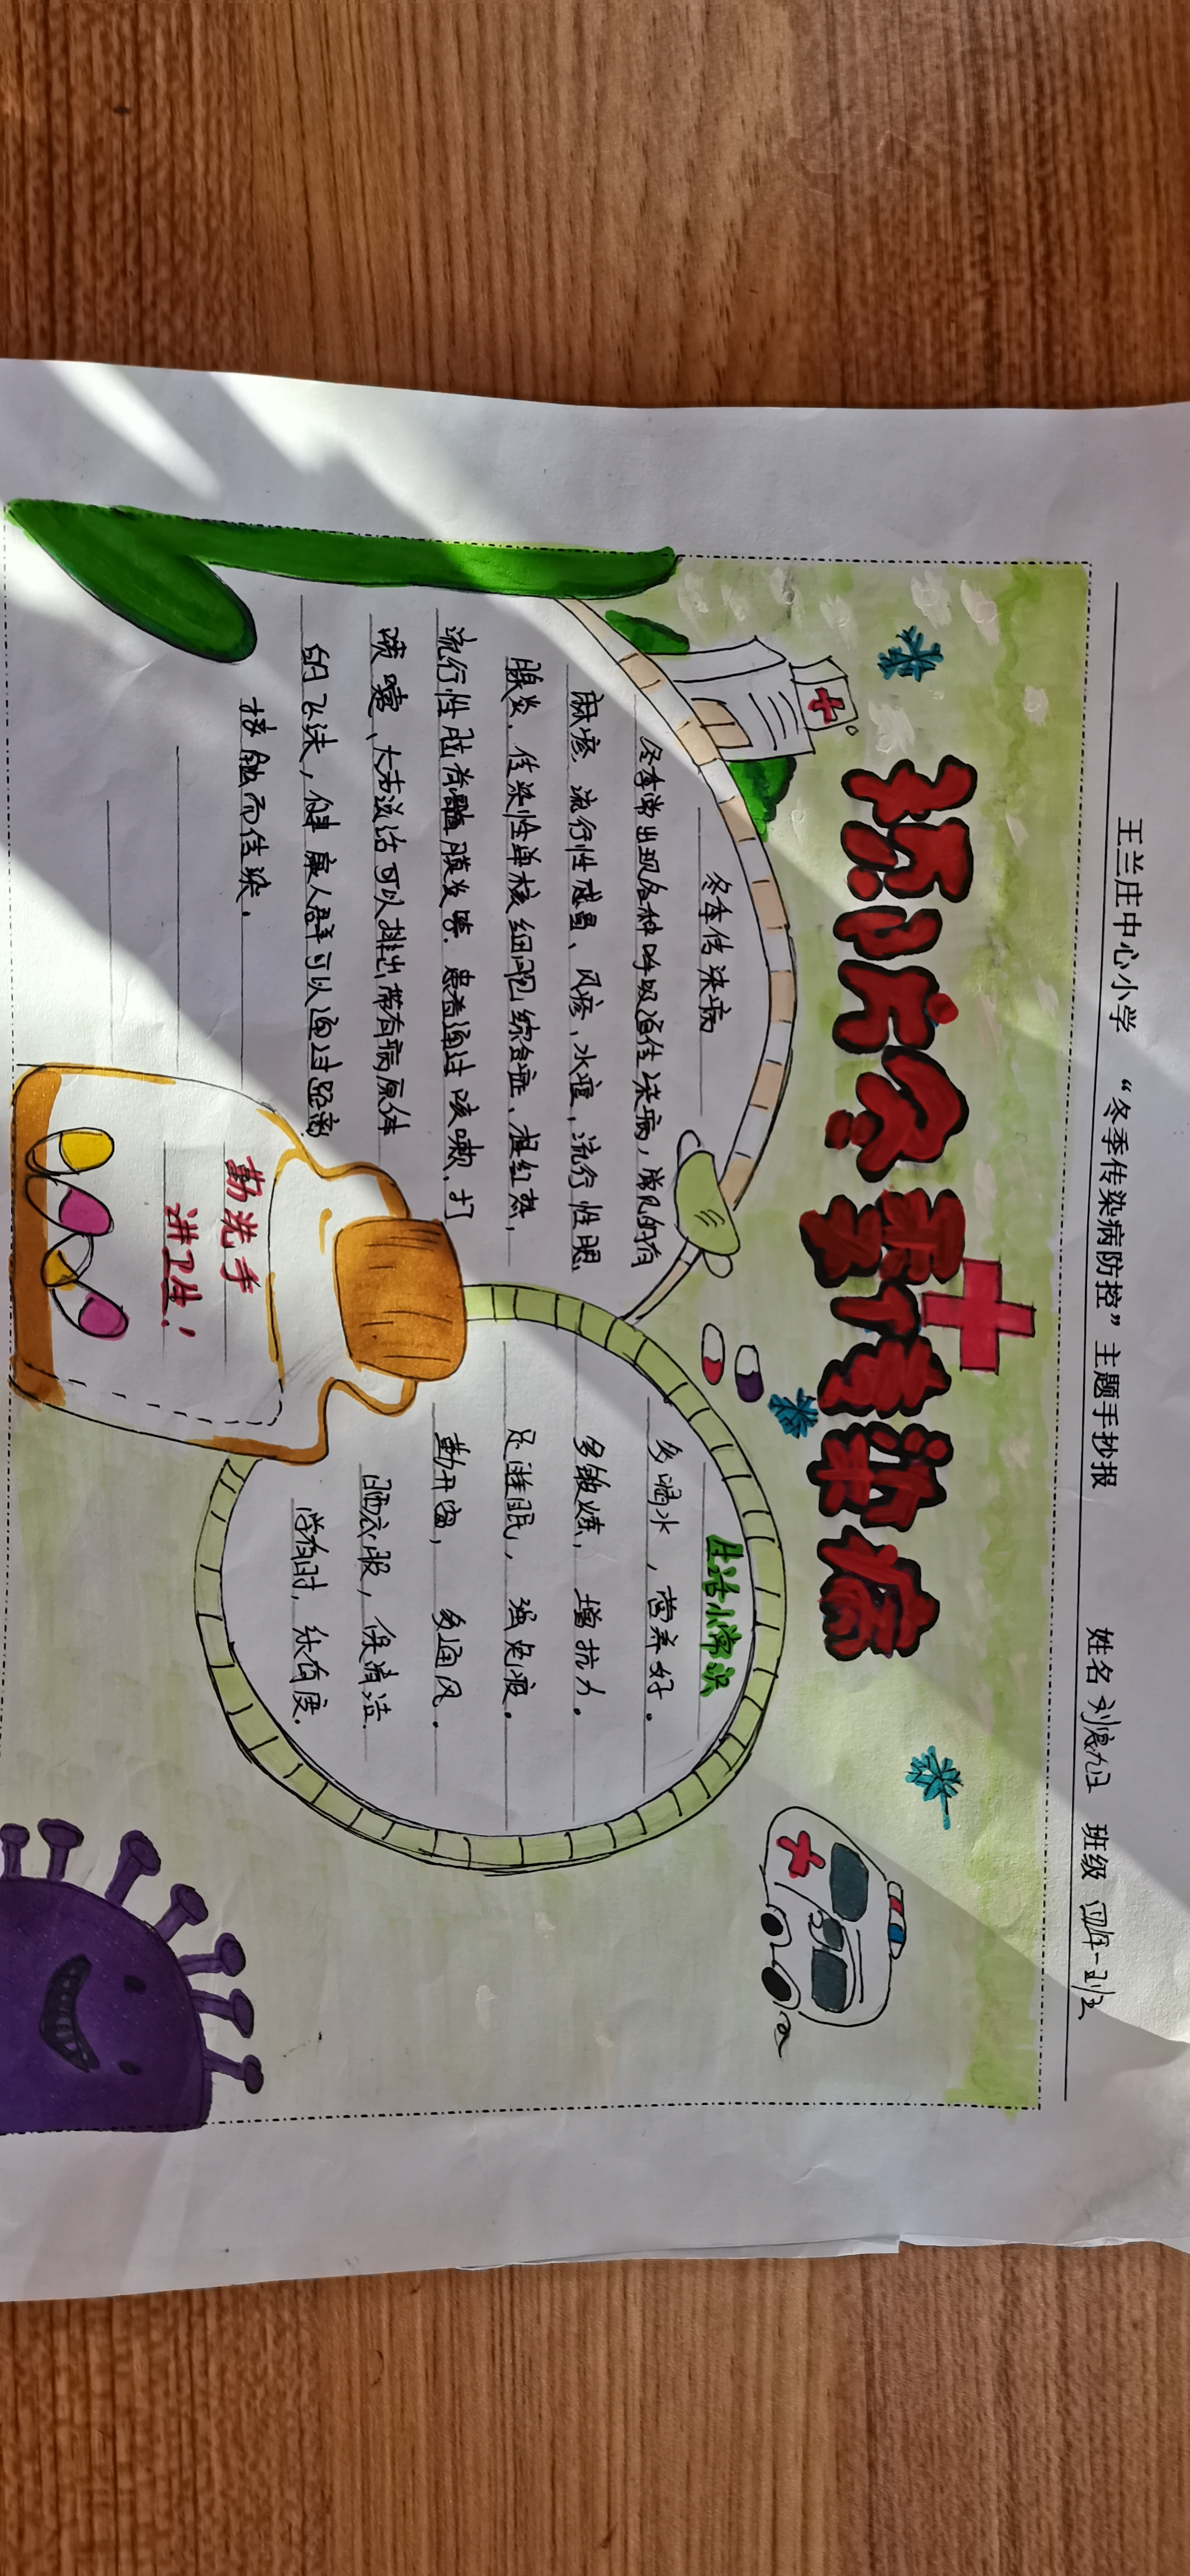 王兰庄中心小学 “冬季传染病防控”主题手抄报 姓名 刘德旭 班级 四年一班
预防冬季传染病
冬季传染病
冬季常出现各种呼吸道传染病，常见的有
麻疹、流行性感冒、风疹、水痘，流行性腮
腺炎、传染性单核细胞综合症、猩红热，
流行性脑脊髓膜炎等。患者通过咳嗽、打
喷嚏、大声说话可以排出带有病原体
的飞沫，健康人群可以通过
接触而传染。
生活小常识
多喝水，营养好。
多锻炼，增抗力。
足睡眠，强免疫。
勤开窗，多通风。
晒衣服，保清洁。
学有时，乐有度。
勤洗手
讲卫生！